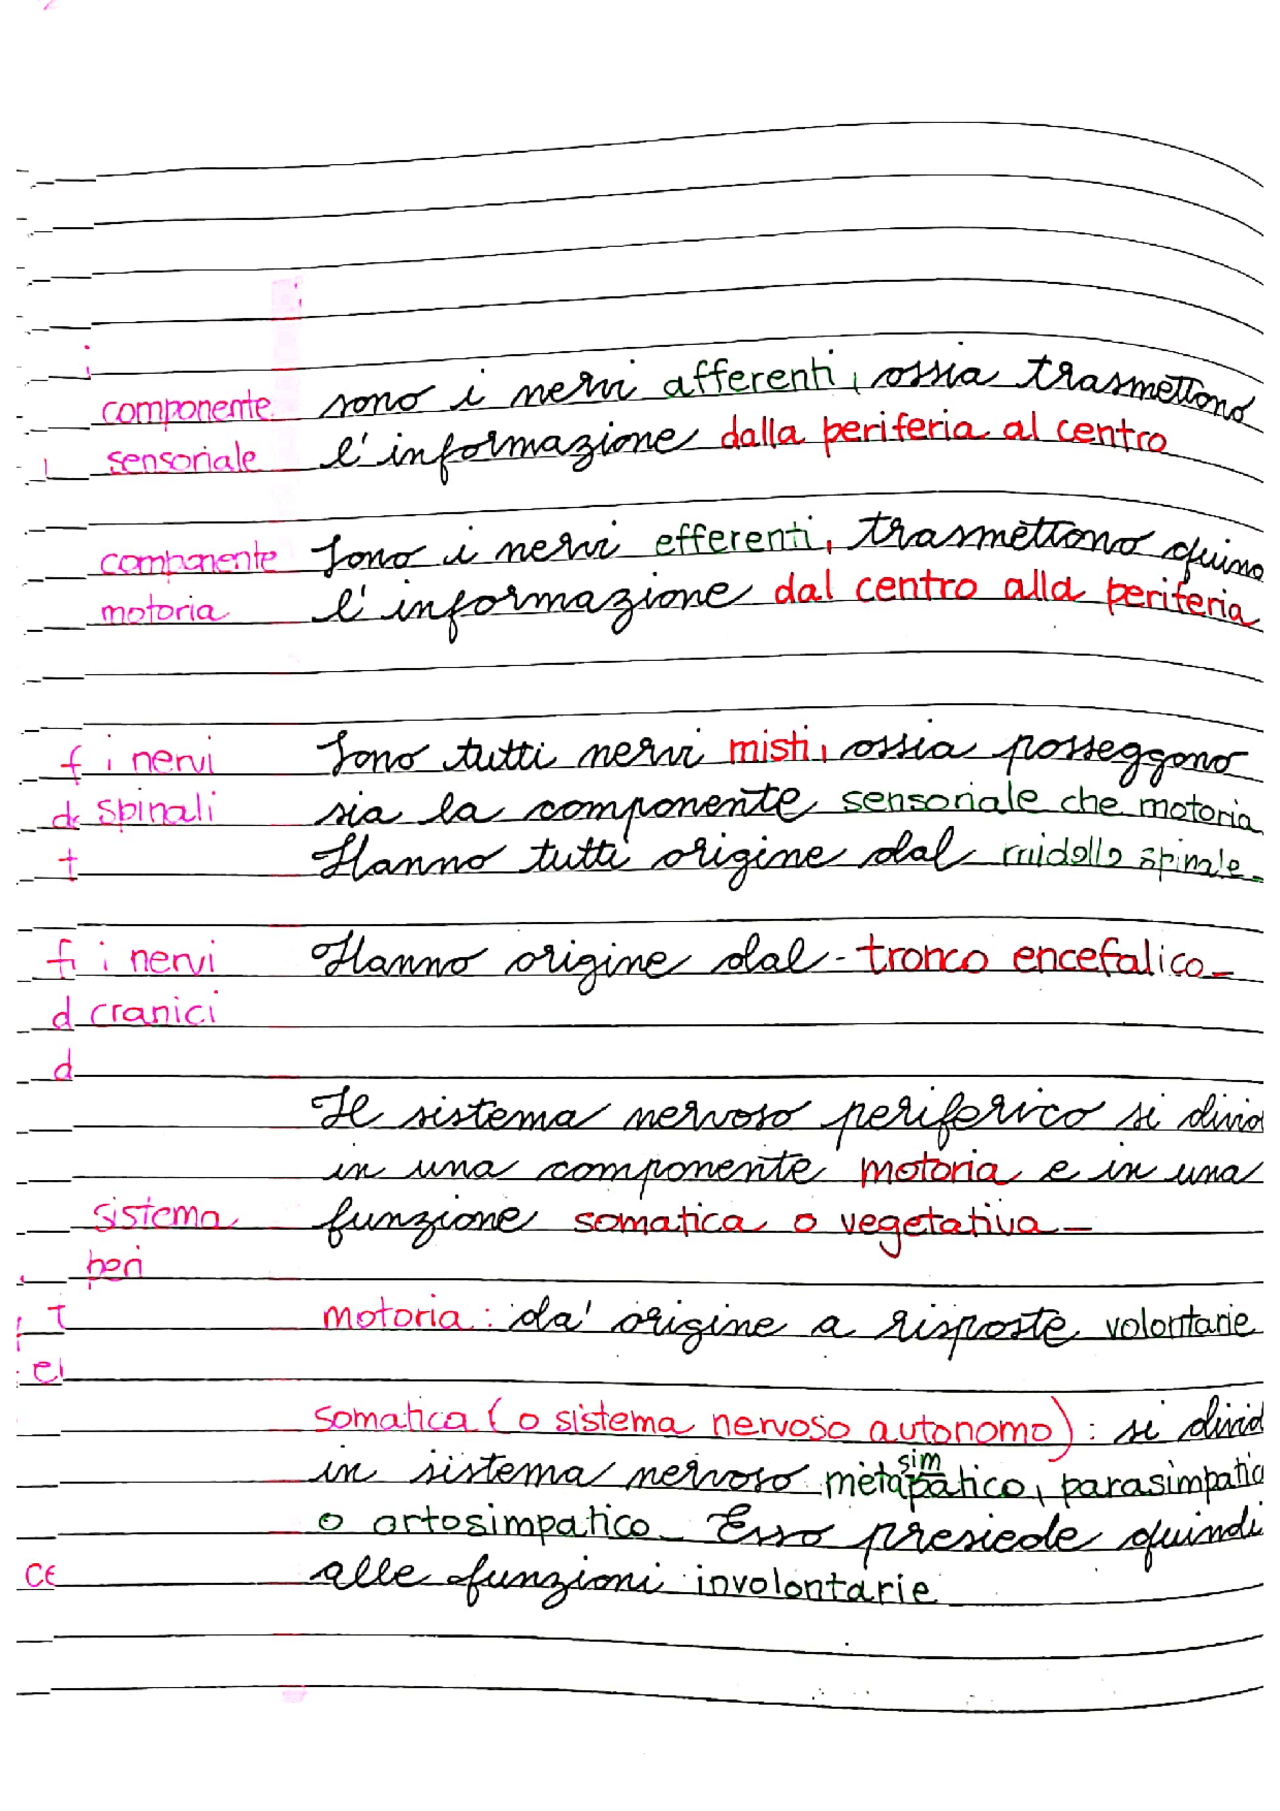 componente sono i nervi afferenti, ossia trasmettono
sensoriale l'informazione dalla periferia al centro
componente Sono i nervi efferenti, trasmettono quin
motoria l'informazione dal centro alla periferia
f i nervi Sono tutti nervi misti, ossia posseggono
d spinali sia la componente sensoriale che motoria
t Hanno tutti origine dal midollo spinale.
f i nervi Hanno origine dal tronco encefalico
d cranici
d
Il sistema nervoso periferico si divid
in una componente motoria e in una
sistema funzione somatica o vegetativa
peri
T motoria: da' origine a risposte volontarie
el
somatica (o sistema nervoso autonomo): si divid
in sistema nervoso metasimpatico, parasimpatic
o ortosimpatico. Esso presiede quindi
ce alle funzioni involontarie